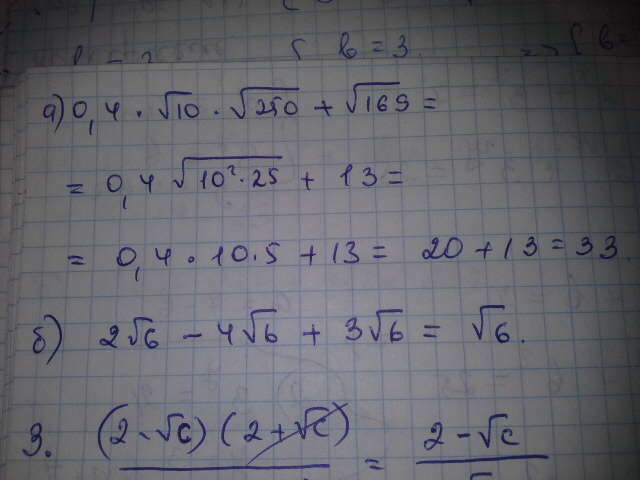 b = 3
а) 0,4 · √10 · √250 + √169 =
= 0,4 √10² · 25 + 13 =
= 0,4 · 10 · 5 + 13 = 20 + 13 = 33
б) 2√6 − 4√6 + 3√6 = √6.
3. (2 − √c) (2 + √c) = 2 − √c